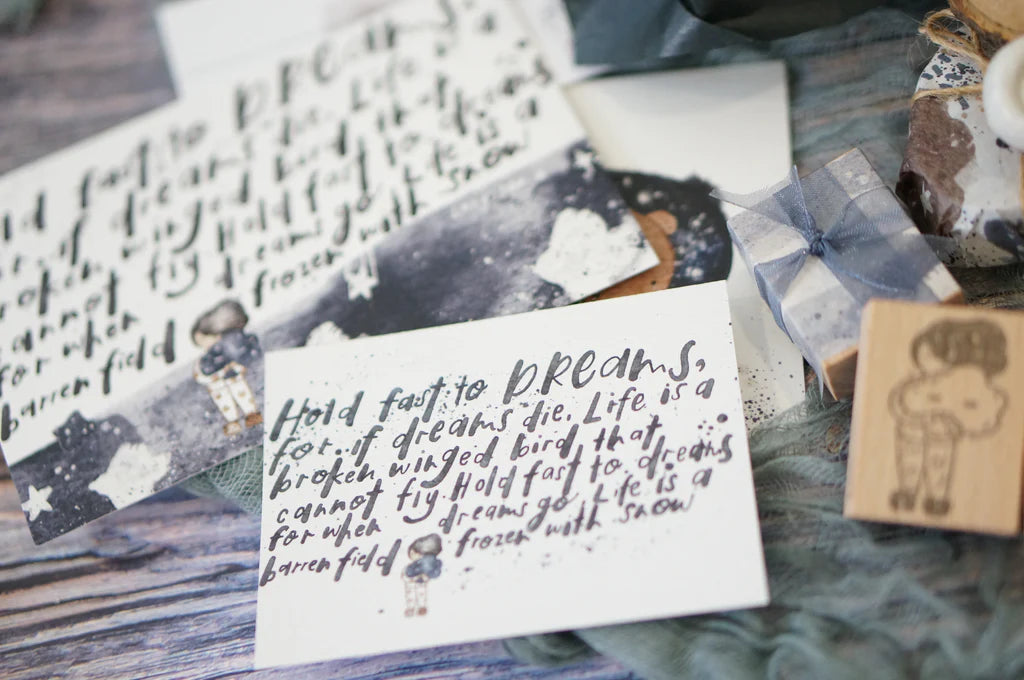 fast to DREAMS,
if dreams die. Life
winged bird that
cannot fly Hold fast to dreams
for when dreams go Life is a
barren field frozen with snow
Hold fast to DREAMS,
for if dreams die. Life is a
broken winged bird that
cannot fly. Hold fast to dreams
for when dreams go. Life is a
barren field frozen with snow